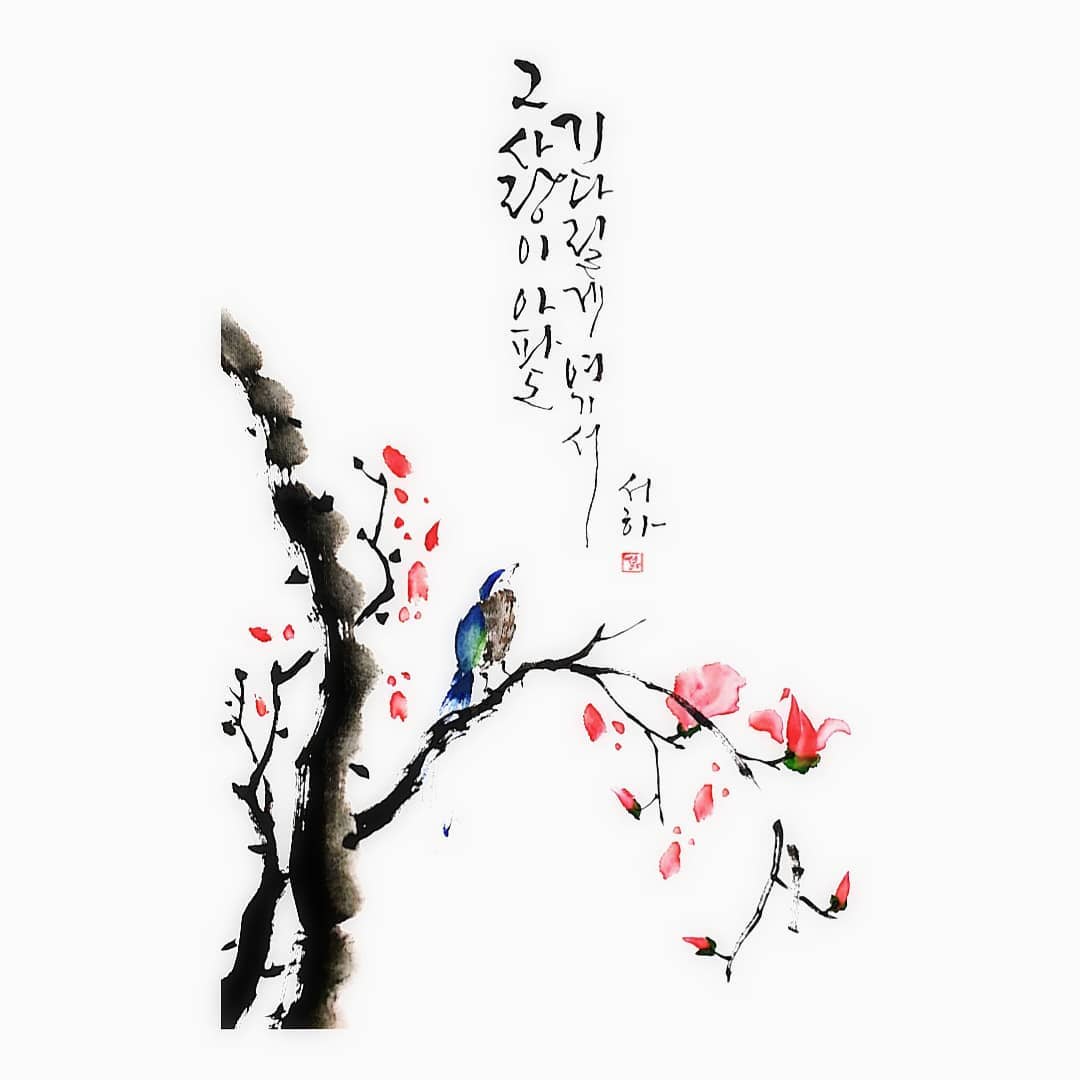 그 사랑이 아파도
기다릴게 여기서
서하